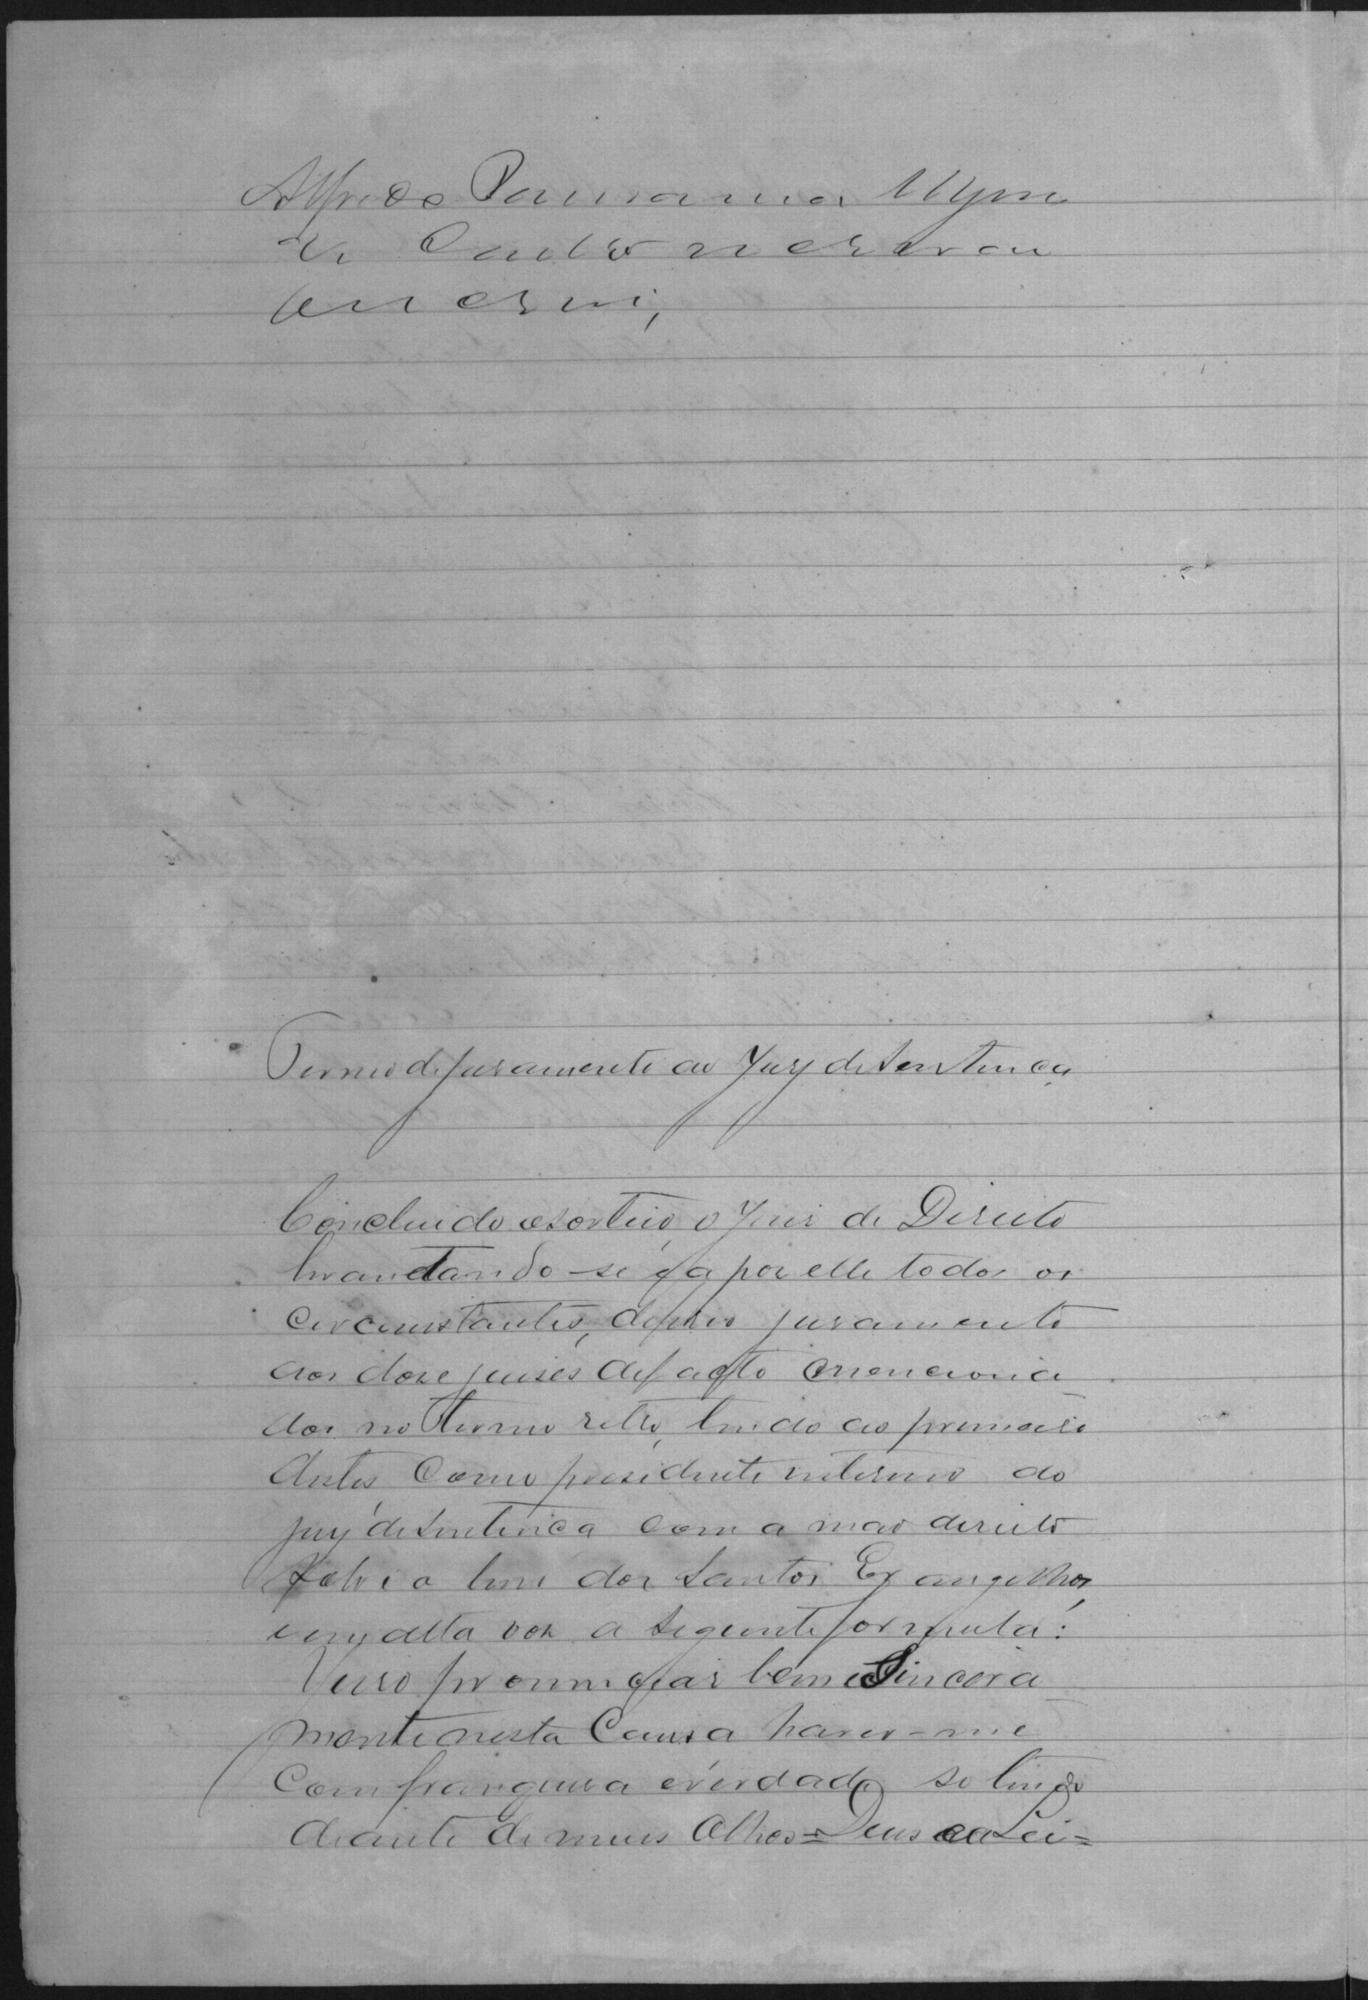 Alfredo
de Castro o escrevi
Termo de juramento ao Jury de Sentença
Concluido o sorteio, o Juis de Direito
levantando-se e a por elle todos os
circunstantes, deferio juramento
aos dose juises de facto menciona
dos no termo retro, lendo ao primeiro
delles como presidente interino do
jury de sentença com a mão direita
sobre o livro dos Santos Evangelhos,
em alta voz a seguinte formula:
Juro pronunciar bem e Sincera
mente nesta Causa haver-me
Com franquesa e verdade so tendo
diante de meus Olhos = Deus e a Lei =